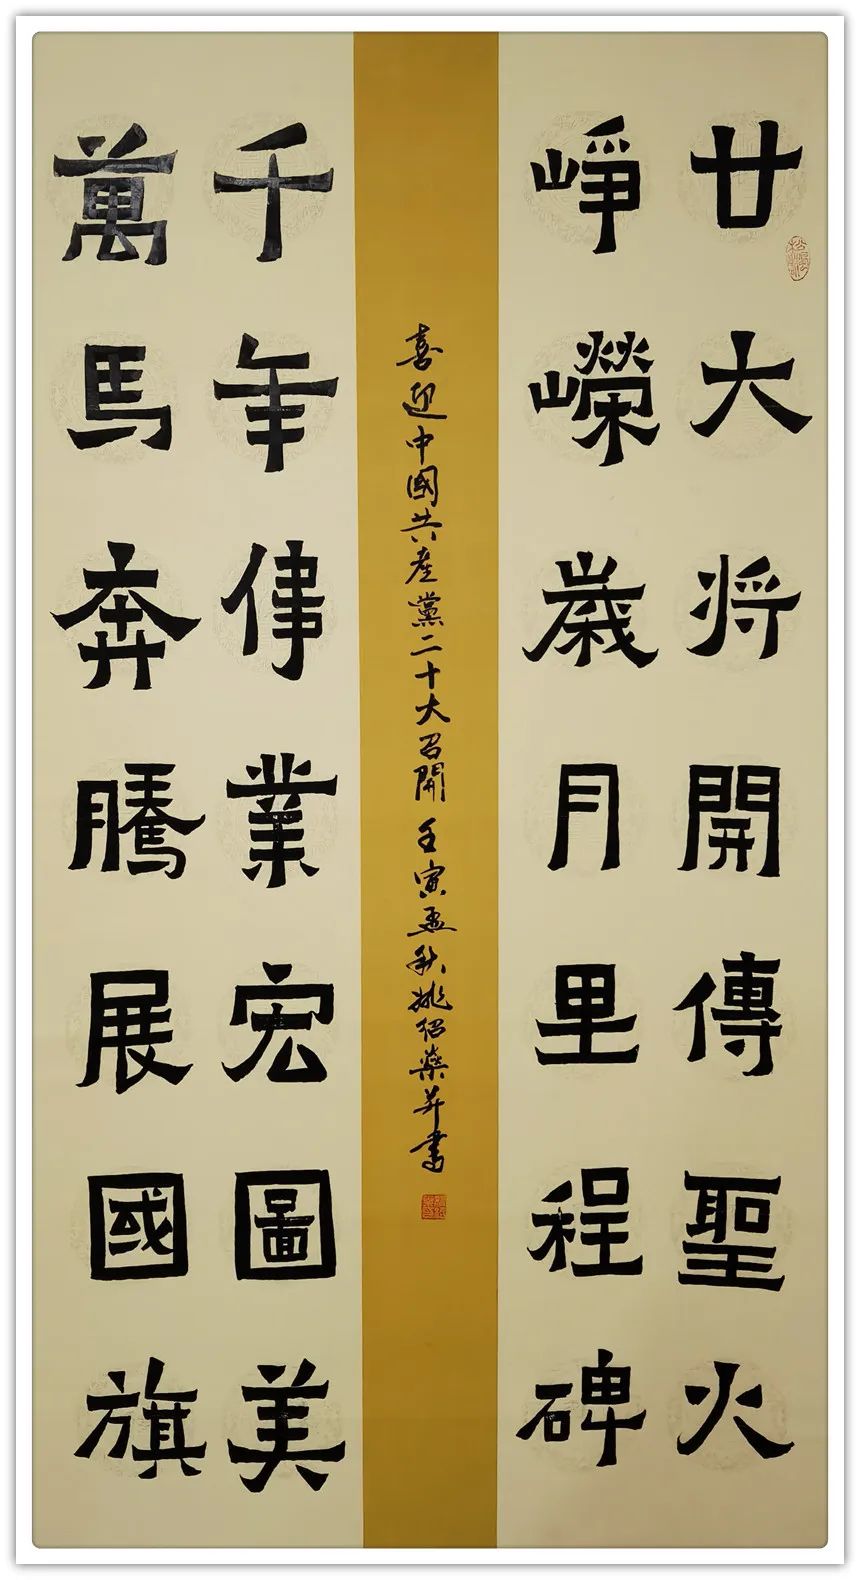 廿大将開傳聖火
崢嶸歲月里程碑
喜迎中國共產黨二十大召開 壬寅孟秋姚绍藥并書
千年偉業宏圖美
萬馬奔騰展國旗